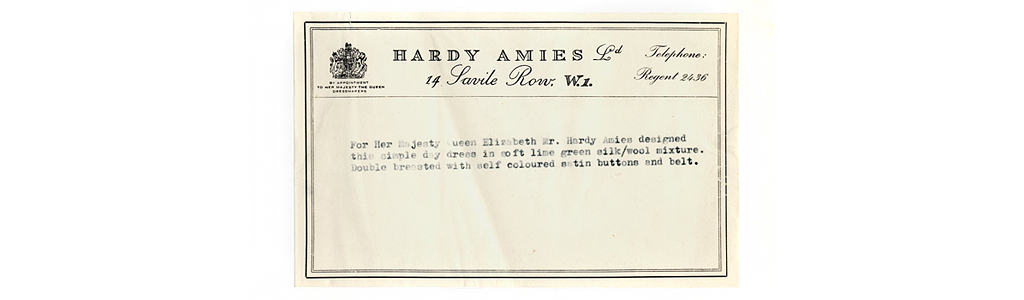 HARDY AMIES Ld
14 Savile Row. W.1.
Telephone:
Regent 2436
BY APPOINTMENT
TO HER MAJESTY THE QUEEN
DRESSMAKERS
For Her Majesty Queen Elizabeth Mr. Hardy Amies designed
this simple day dress in soft lime green silk/wool mixture.
Double breasted with self coloured satin buttons and belt.